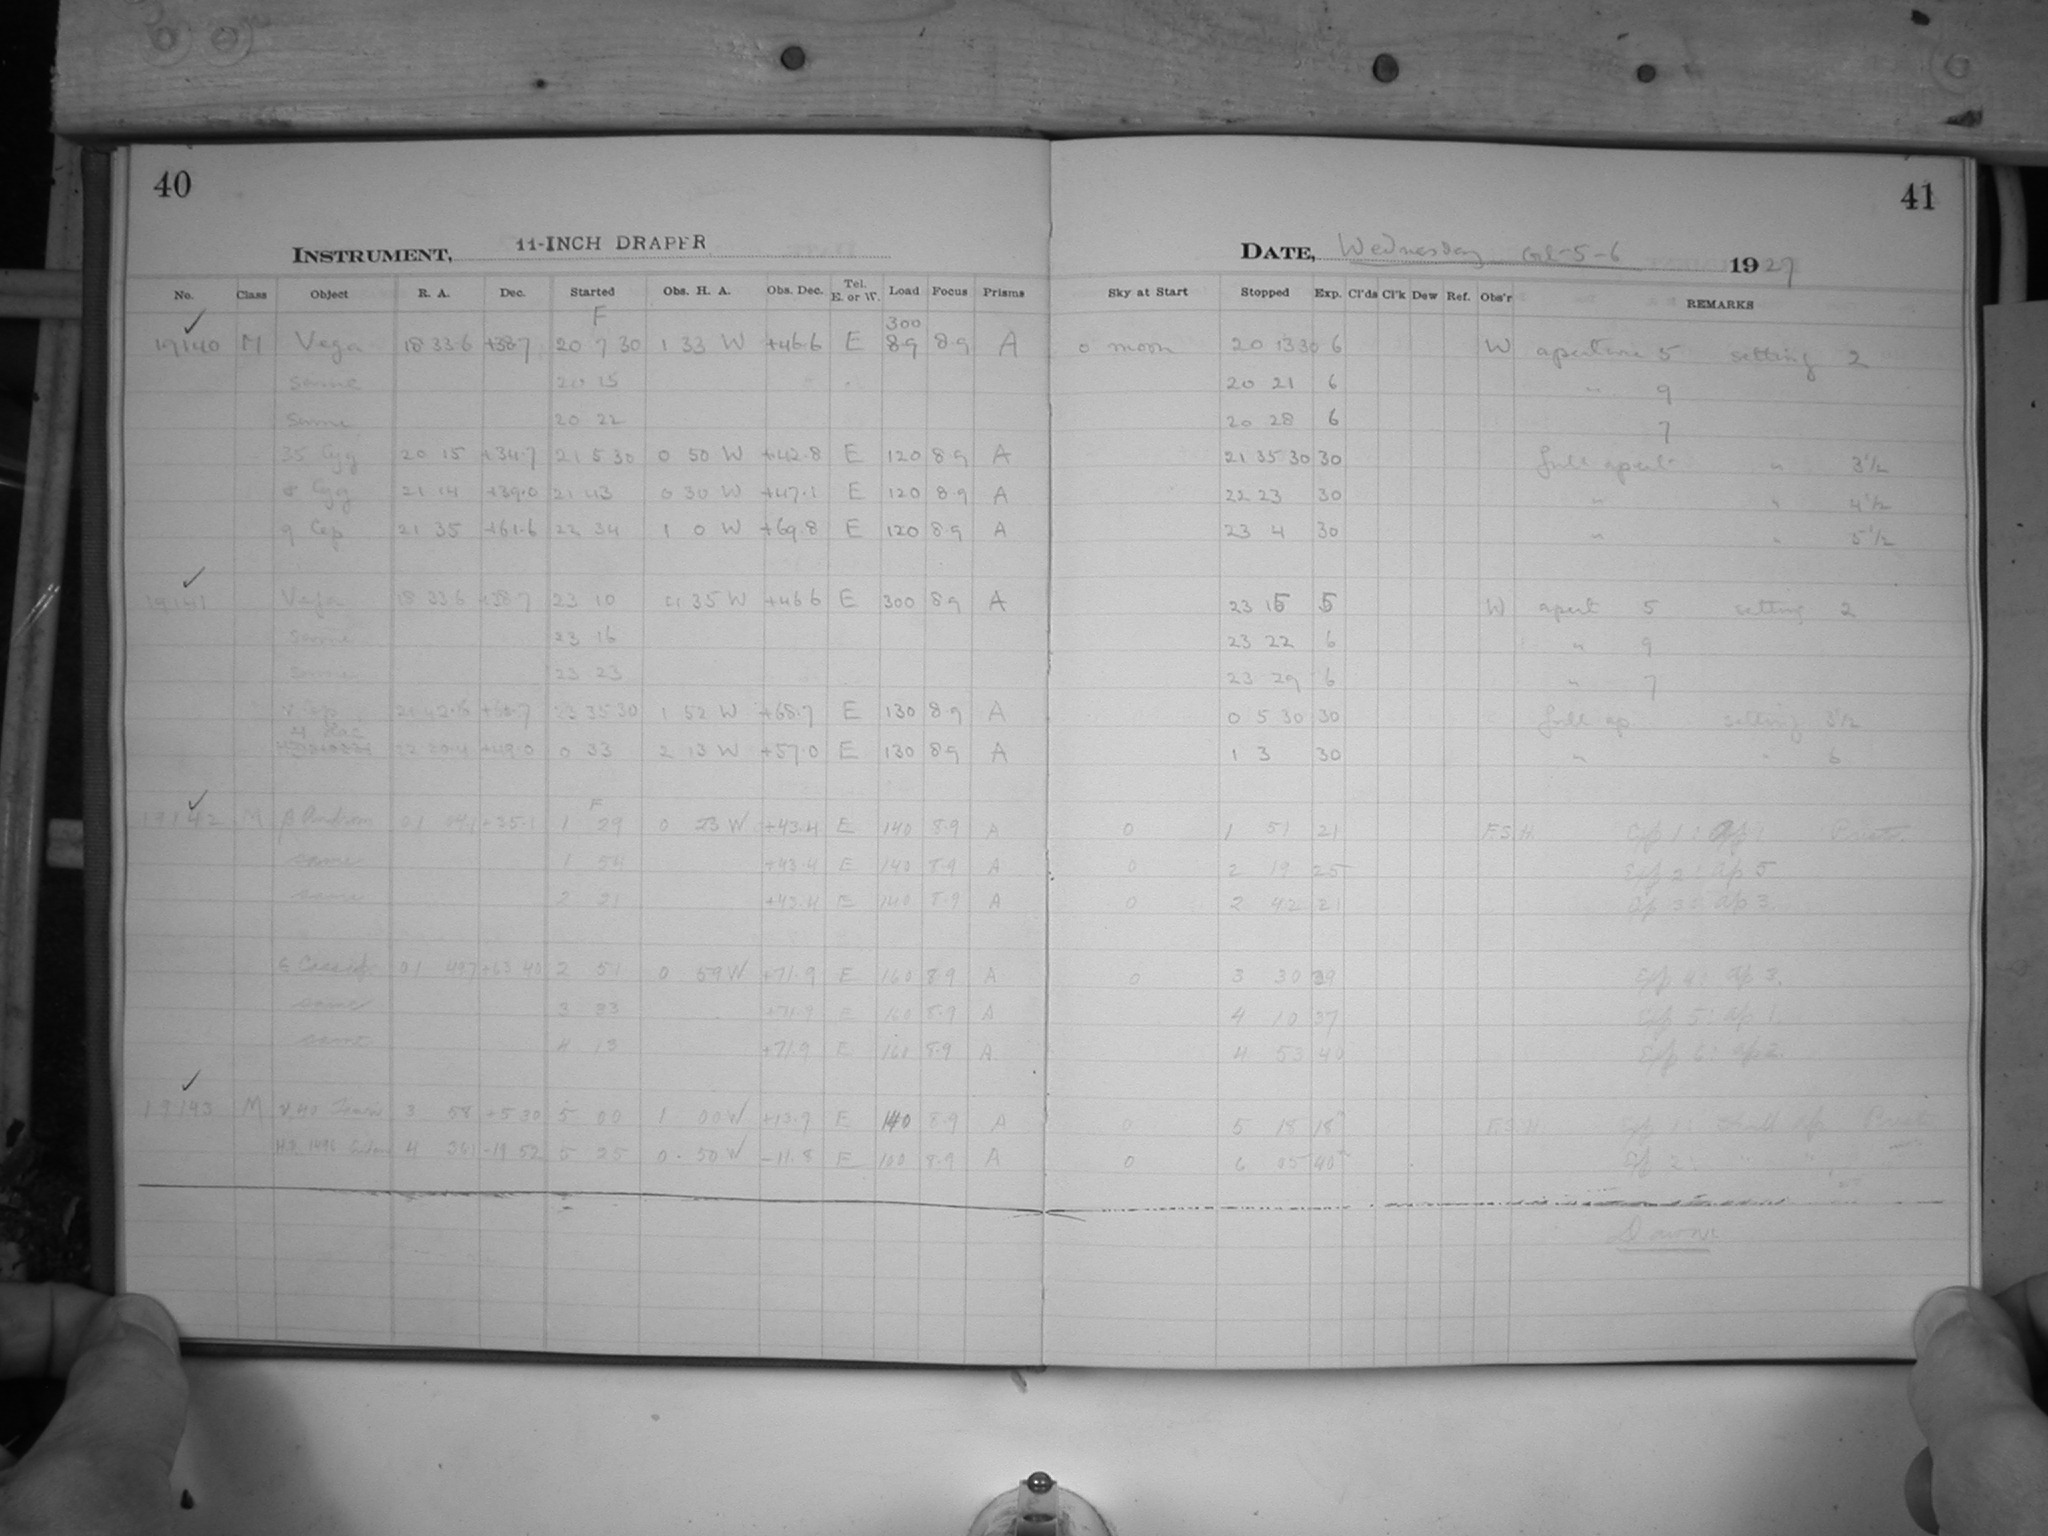 40
41
INSTRUMENT, 11-INCH DRAPER
DATE, Wednesday 5-6 1929
No. Class Object R. A. Dec. Started Obs. H. A. Obs. Dec. Tel. E. or W. Load Focus Prisms Sky at Start Stopped Exp. Cl'ds Cl'k Dew Ref. Obs'r REMARKS
F 300
19140 M Vega 18 33.6 +38.7 20 7 30 1 33 W +46.6 E 89 8.9 A 0 moon 20 13 30 6 W aperture 5 setting 2
same 20 15 20 21 6 " 9
same 20 22 20 28 6 7
35 Cyg 20 15 +34.7 21 5 30 0 50 W +42.8 E 120 8.9 A 21 35 30 30 full apert " 3 1/2
Cyg 21 14 +39.0 21 43 0 30 W +47.1 E 120 8.9 A 22 23 30 " " 4 1/2
9 Cep 21 35 +61.6 22 34 1 0 W +69.8 E 120 8.9 A 23 4 30 " " 5 1/2
19141 Vega 18 33.6 +38.7 23 10 35 W +46.6 E 300 8.9 A 23 15 5 W apert 5 setting 2
same 23 16 23 22 6 " 9
same 23 23 23 29 6 " 7
23 35 30 1 52 W +68.7 E 130 8.9 A 0 5 30 30 full ap setting 3 1/2
+49.0 0 33 2 13 W +57.0 E 130 8.9 A 1 3 30 " " 6
F
19142 M β Androm 01 +35.1 1 29 0 23 W +43.4 E 140 8.9 A 0 1 51 21 F.S.H. 1: ap 1
same 1 54 +43.4 E 140 8.9 A 0 2 19 25 2: ap 5
same 2 21 +43.4 E 140 8.9 A 0 2 42 21 3: ap 3
01 497 +63 40 2 51 0 59 W +71.9 E 160 8.9 A 0 3 30 39 4: ap 3.
same 3 33 +71.9 E 160 8.9 A 4 10 37 5: ap 1
same 4 13 +71.9 E 160 8.9 A 4 53 40 6: ap 2.
19143 M 3 58 +5 30 5 00 1 00 W +13.9 E 140 8.9 A 0 5 18 18 F.S.H. 1: full ap
H.R. 1496 4 361 -19 52 5 25 0 50 W -11.8 E 100 8.9 A 0 6 05 40 2: " "
Dawn